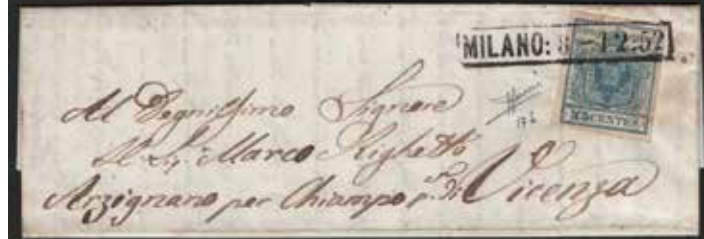 MILANO: 8-12.52
45CENTES
Al Degnissimo Signore
Il Sig. Marco Righetto
Arzignano per Chiampo p. di Vicenza